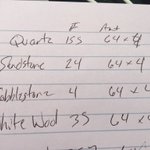 # Amt
Quartz 155 64 x 4
Sandstone 24 64 x 4
Cobblestone 4 64 x 4
White Wool 35 64 x